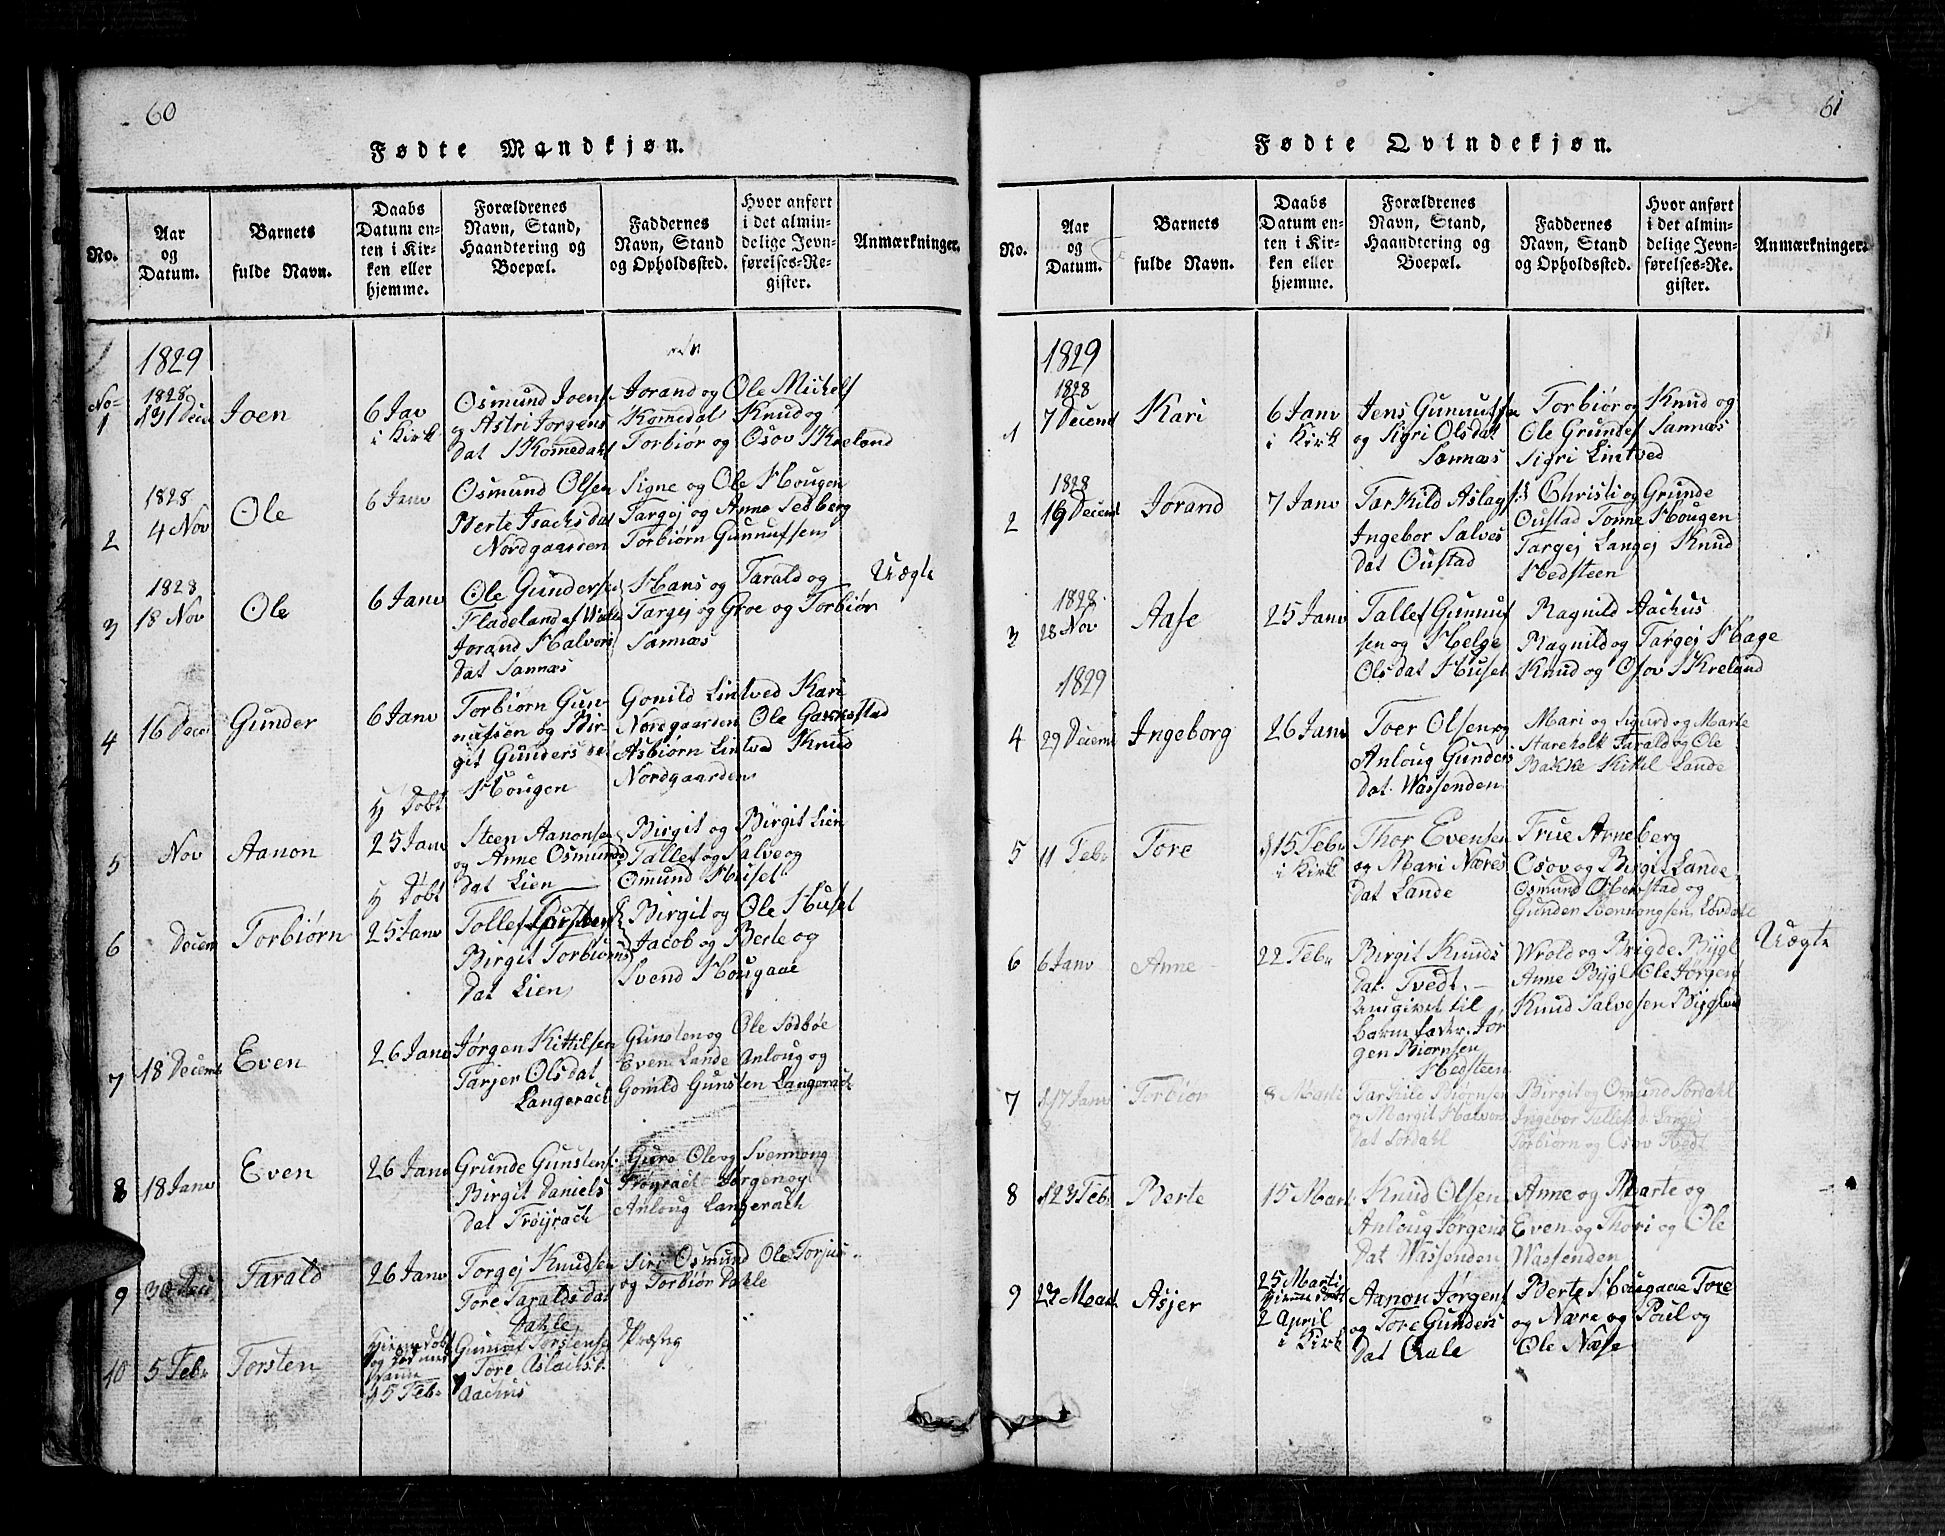 60
Fødte Mandkjøn.
No.
Aar
og
Datum.
Barnets
fulde Navn.
Daabs
Datum en-
ten i Kir-
ken eller
hjemme.
Forældrenes
Navn, Stand,
Haandtering og
Boepæl.
Faddernes
Navn, Stand
og Opholdssted.
Hvor anført
i det almin-
delige Jevn-
førelses-Re-
gister.
Anmærkninger.
1829
No-
1
1828
Joen
6 Jan
i Kirk
Osmund Joens
og Astri Jorgens
dat Komedahl
Jorand og Ole Michels
Komedal Knud og
Torbiør og Osov Kreland
2
1828
4 Nov
Ole
6 Janv
Osmund Olsen
Berte Isachs dat
Nordgaarden
Signe og Ole Hougen
Targej og Anne Tedberg
Torbiørn Gunnufsen
3
1828
18 Nov
Ole
6 Janv
Ole Gunderse
Fladeland af
Jorand Halvors
dat Sannæs
Hans og Tarald og
Targej og Groe og Torbiør
Sannæs
Uægte
4
16 Decm
Gunder
6 Janv
Torbiørn Gun
nufsen og Bir-
git Gunders da
Hougen
Gonild Lintved Kari
Nordgaarden Ole
Asbiørn Lintved Knud
Nordgaarden
5
Nov
Aanon
Døbt
25 Janv
Steen Aanonsen
og Anne Osmund
dat Lien
Birgit og Birgit Lien
Tallef og Salve og
Omund Heisel
6
Decem
Torbiørn
Døbt
25 Janv
Tollef
Birgit Torbiørns
dat Lien
Birgit og Ole Husel
Jacob og Berte og
Svend Hougaae
7
18 Decemb
Even
26 Janv
Jørgen Kittilsen
Tarjer Olsdat
Langerach
Gunsten og Ole Sødbøe
Even Lande Anloug og
Gonild Gunsten Langerach
8
18 Janv
Even
26 Janv
Grunde Gunstens
Birgit Daniels
dat Trøyrach
Guro Ole og Svennong
Trøyrach Jørgen og
Anloug Langerach
9
30 Dec
Tarald
26 Janv
Torgej Knudsen
Tore Taralds dat
Dahle
Siri Osmund Ole Torjus
og Torbiør Dahle
10
5 Feb
Torsten
Hiemedøbt
15 Feb
Gunuf Torstense
Tore Aslachs
Aachus
61
Fødte Qvindekjøn.
No.
Aar
og
Datum.
Barnets
fulde Navn.
Daabs
Datum en-
ten i Kir-
ken eller
hjemme.
Forældrenes
Navn, Stand,
Haandtering og
Boepæl.
Faddernes
Navn, Stand
og Opholdssted.
Hvor anført
i det almin-
delige Jevn-
førelses-Re-
gister.
Anmærkninger.
1829
1
1828
7 Decemb
Kari
6 Janv
i Kirk
Jens Gunnufsn
og Sigri Olsdat
Sannæs
Torbiør og Knud og
Ole Grundes Sannæs
Sigri Lintved
2
1828
16 Decemb
Jorand
7 Janv
Tarkild Aslags
Ingebor Salves
dat Oustad
Christi og Grunde
Oustad Tonne Hougen
Targej Langej Knud
Hedsteen
3
1828
28 Nov
Aase
25 Janv
Tallef Gunnuf
sen og Helge
Olsdat Husel
Ragnild Aachus
Ragnild og Targej Hage
Knud og Osov Kreland
1829
4
29 Decemb
Ingeborg
26 Janv
Toer Olsen og
Anloug Gunders
dat. Wassenden
Mari og Sigurd og Marte
Stareholt Tarald og Ole
Bakke Kitil Lande
5
11 Feb
Tore
15 Feb
i Kirk
Thor Evensen
og Mari Næres
dat Lande
True Arneberg
Osov og Birgit Lande
Osmund
Gunder Svennongsen Løvdahl
6
6 Janv
Anne
22 Feb
Birgit Knuds
dat. Tvedt.
angivet til
barnefader Jør
gen Biørnsen
Hedsteen
Wrold og Brigde Bygl
Anne Bygl Ole Jørgens
Knud Salvesen Bygland
Uægte
7
17 Janv
Torbiør
8 Marti
Tarkild Biørnsen
og Margit Halvors
dat Sordahl
Birgit og Omund Sordahl
Torbiørn og Osov
8
23 Feb
Berte
15 Mart
Knud Olsen
Anloug Jørgens
dat Wassenden
Anne og Marte og
Even og Thori og Ole
Wassenden
9
23 Mart
Asjer
25 Marti
hiemmedøbt
2 April
i Kirk
Aanon Jørgens
og Tore Gunders
dat
Berte Hougaae Tore
og Nære og Poul og
Ole Næse